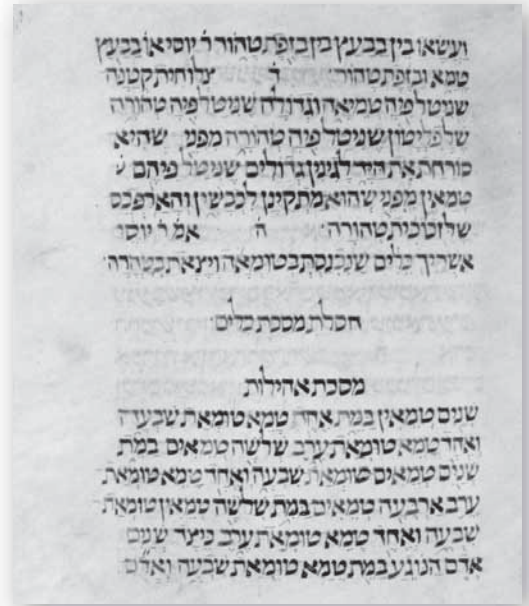 ועשאו בין בבעץ בין בזפת טהור ר' יוסי או' בבעץ
טמא ובזפת טהור: ד צלוחית קטנה
שניטל פיה טמיאה וגדולה שניטל פיה טהורה
שלפליטון שניטל פיה טהורה מפני שהיא
סורחת את היד לגינין גדולים שניטל פיהם
טמאין מפני שהוא מתקינן לכבשין והארפכס
שלזכוכית טהורה: ה אמ' ר' יוסי
אשריך כלים שנכנסת בטומאה ויצאת בטהרה:
חסלת מסכת כלים:
מסכת אהילות
שנים טמאין במת אחד טמא טומאת שבעה
ואחד טמא טומאת ערב שלשה טמאים במת
שנים טמאים טומאת שבעה ואחד טמא טומאת
ערב ארבעה טמאים במת שלשה טמאין טומאת
שבעה ואחד טמא טומאת ערב כיצד שנים
אדם הנוגע במת טמא טומאת שבעה ואדם